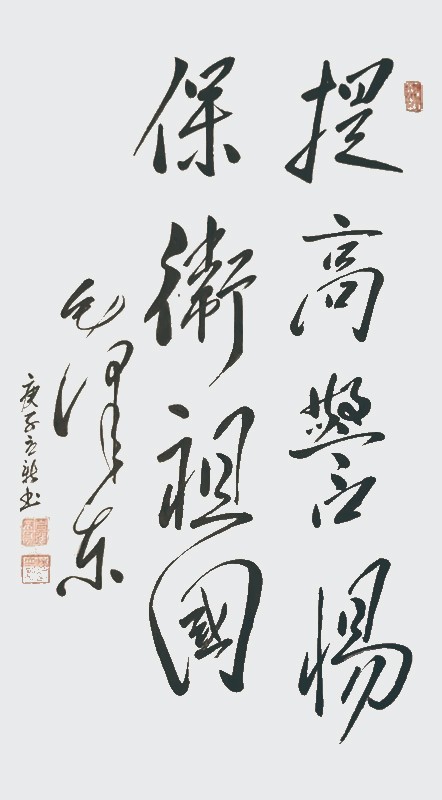 提高警惕
保衛祖國
毛澤东
庚子立新书